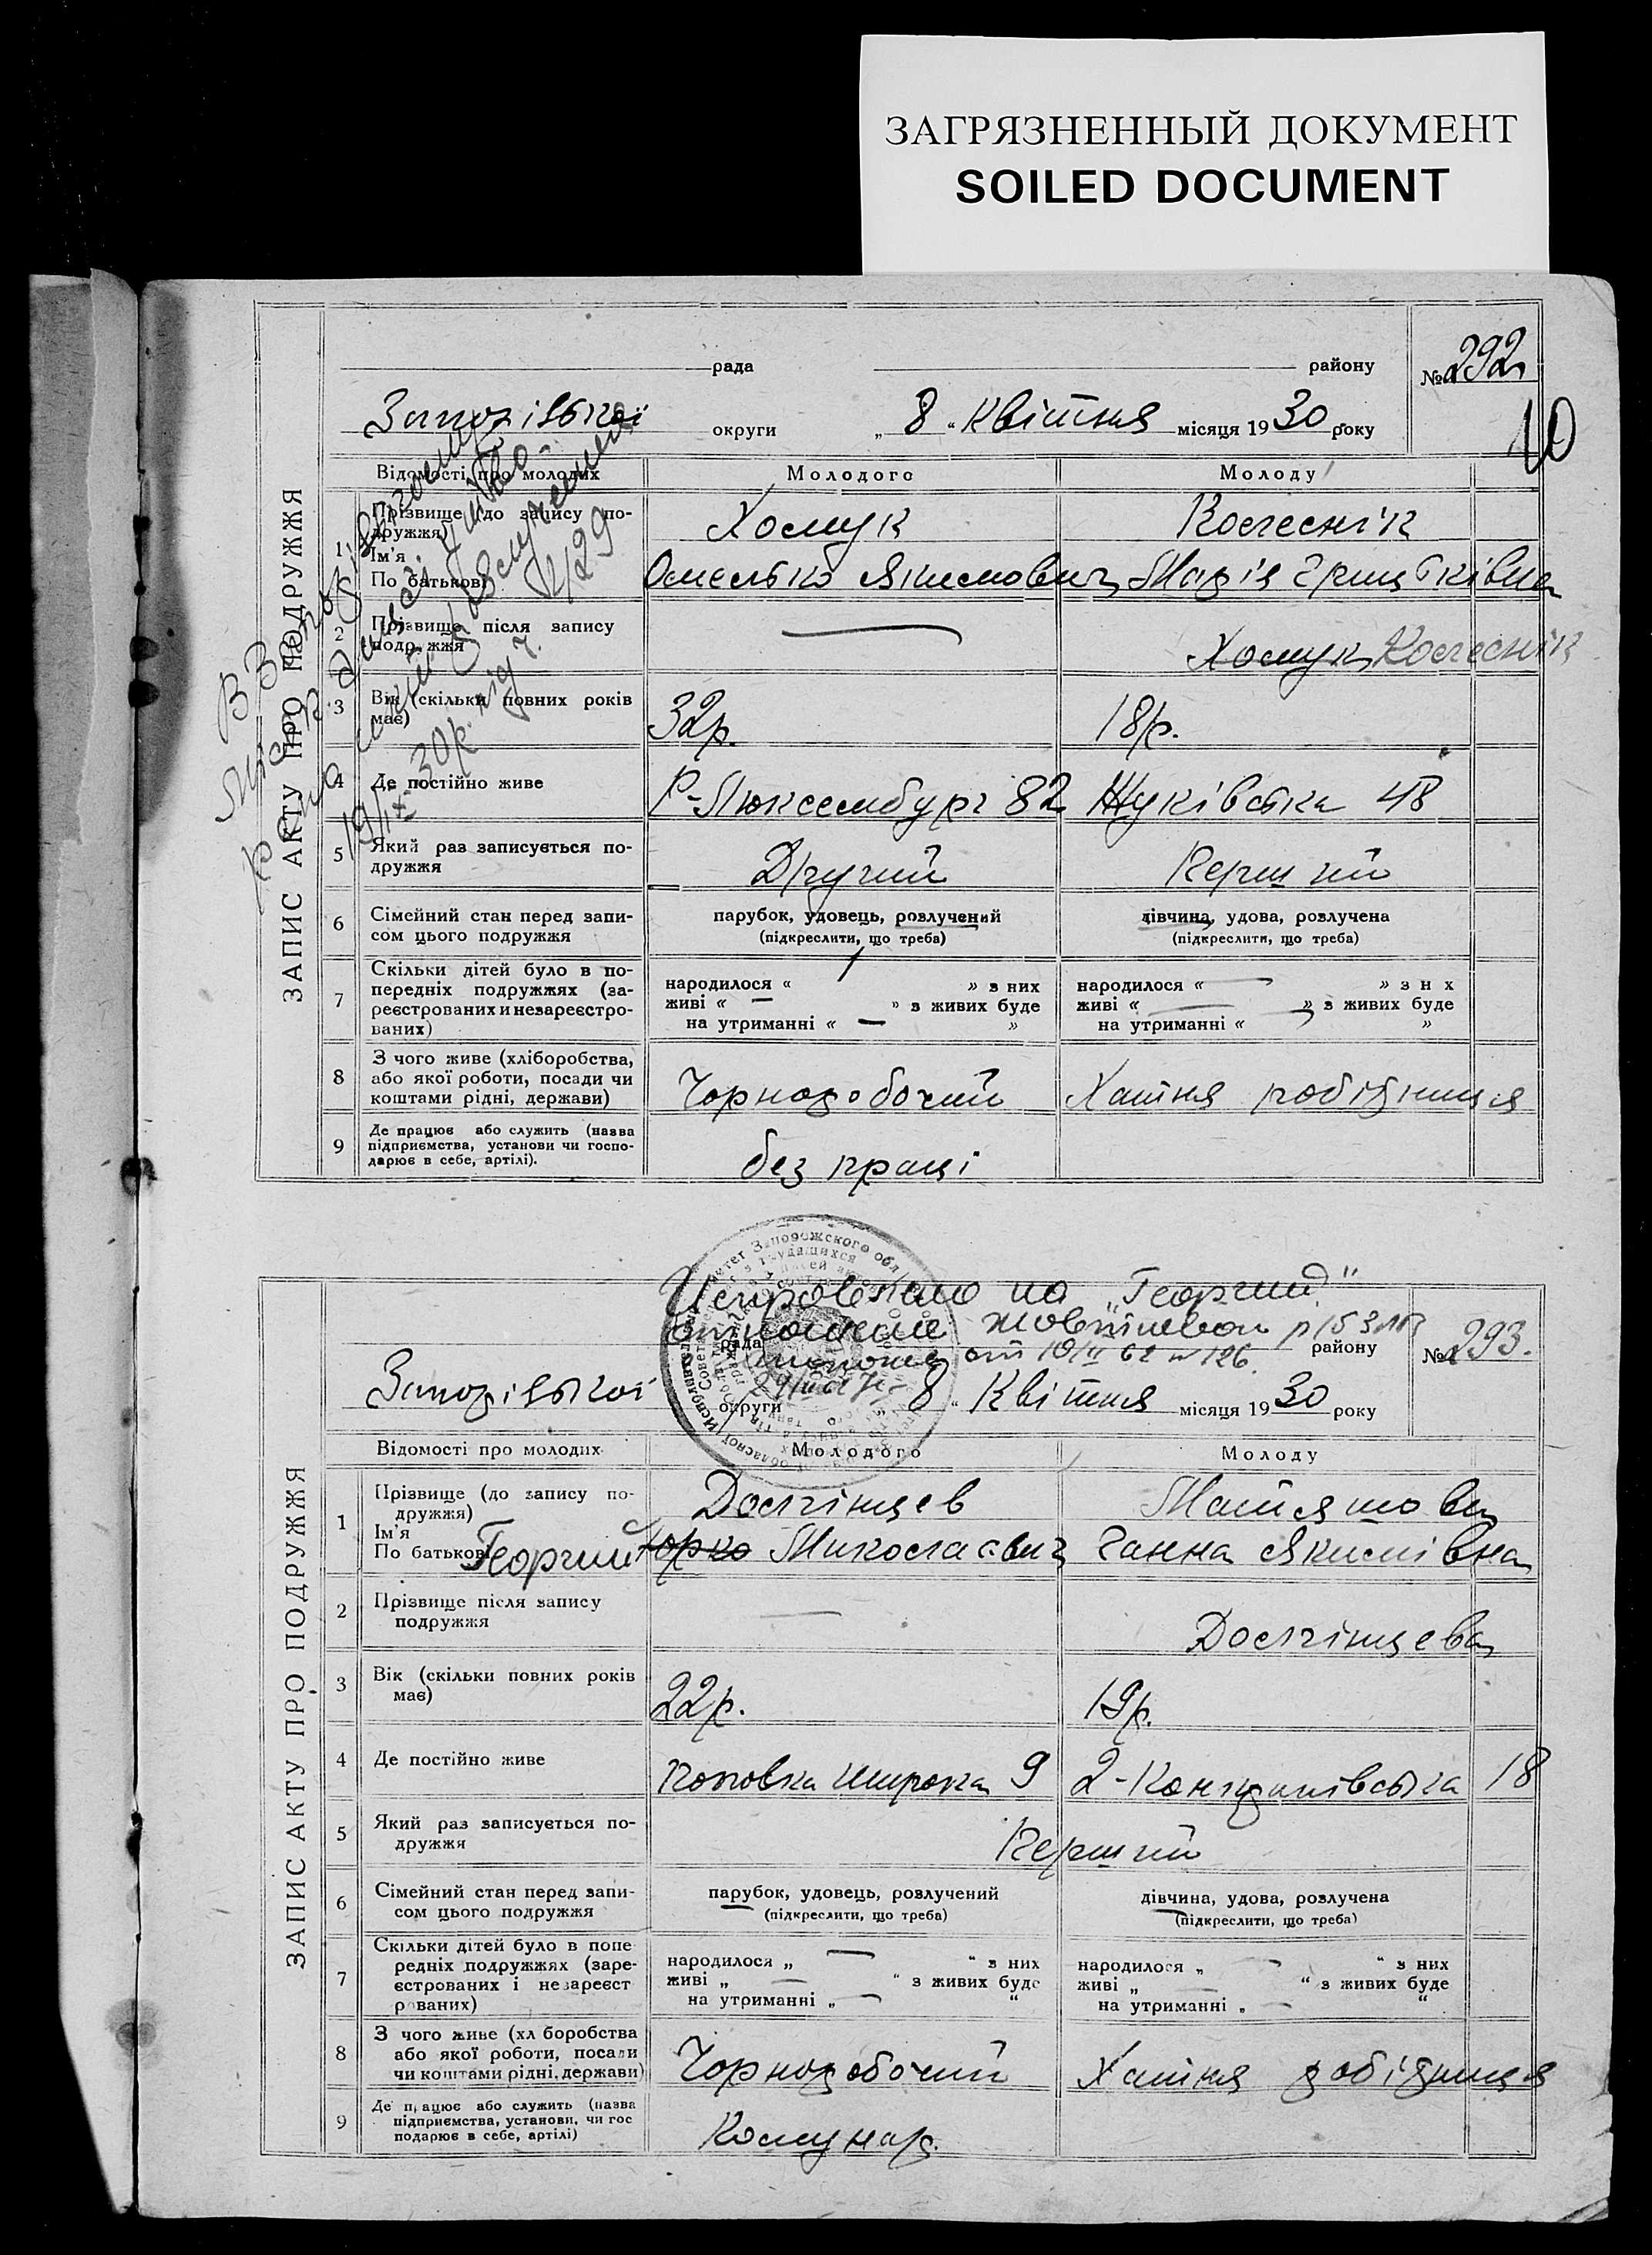 ЗАГРЯЗНЕННЫЙ ДОКУМЕНТ
SOILED DOCUMENT
ЗАПИС АКТУ ПРО ПОДРУЖЖЯ
рада району №292
10
Запорізької округи „ 8 “ Квітня місяця 1930 року
Відомості про молодих Молодого Молоду
1 Прізвище (до запису подружжя) Хомук Колеснік
Ім'я
По батькові Омелько Якимович Марія Грицьківна
2 Прізвище після запису подружжя — Хомук Колеснік
3 Вік (скільки повних років має) 32р. 18р.
4 Де постійно живе Р-Люксембург 82 Жуківська 48
5 Який раз записується подружжя Другий Перший
6 Сімейний стан перед записом цього подружжя парубок, удовець, розлучений дівчина, удова, розлучена
(підкреслити, що треба) (підкреслити, що треба)
7 Скільки дітей було в попередніх подружжях (зареєстрованих и незареєстрованих)
народилося « 1 » з них народилося « — » з н х
живі « — » з живих буде живі « — » з живих буде
на утриманні « — » на утриманні « »
8 З чого живе (хліборобства, або якої роботи, посади чи коштами рідні, держави) Чорноробочий Хатня робітниця
9 Де працює або служить (назва підприємства, установи чи господарює в себе, артілі). без праці
19/IX 30р.
ЗАПИС АКТУ ПРО ПОДРУЖЖЯ
Исправлено на „Георгий“
рада району №293.
от 10/II 62 № 126
Запорізької округи 8 “ Квітня місяця 1930 року
Відомості про молодих Молодого Молоду
1 Прізвище (до запису подружжя) Долгінцев
Ім'я
По батькові Георгий Юрко Миколаєвич Ганна Якимівна
2 Прізвище після запису подружжя — Долгінцева
3 Вік (скільки повних років має) 22р. 19р.
4 Де постійно живе Широка 9 18
5 Який раз записується подружжя Перший
6 Сімейний стан перед записом цього подружжя парубок, удовець, розлучений дівчина, удова, розлучена
(підкреслити, що треба) (підкреслити, що треба)
7 Скільки дітей було в попередніх подружжях (зареєстрованих і незареєстрованих)
народилося „ — “ з них народилося „ — “ з них
живі „ — “ з живих буде живі „ — “ з живих буде
на утриманні „ — “ на утриманні „ — “
8 З чого живе (хл боробства або якої роботи, посади чи коштами рідні, держави) Чорноробочий Хатня робітниця
9 Де працює або служить (назва підприємства, установи, чи господарює в себе, артілі) Комунар.